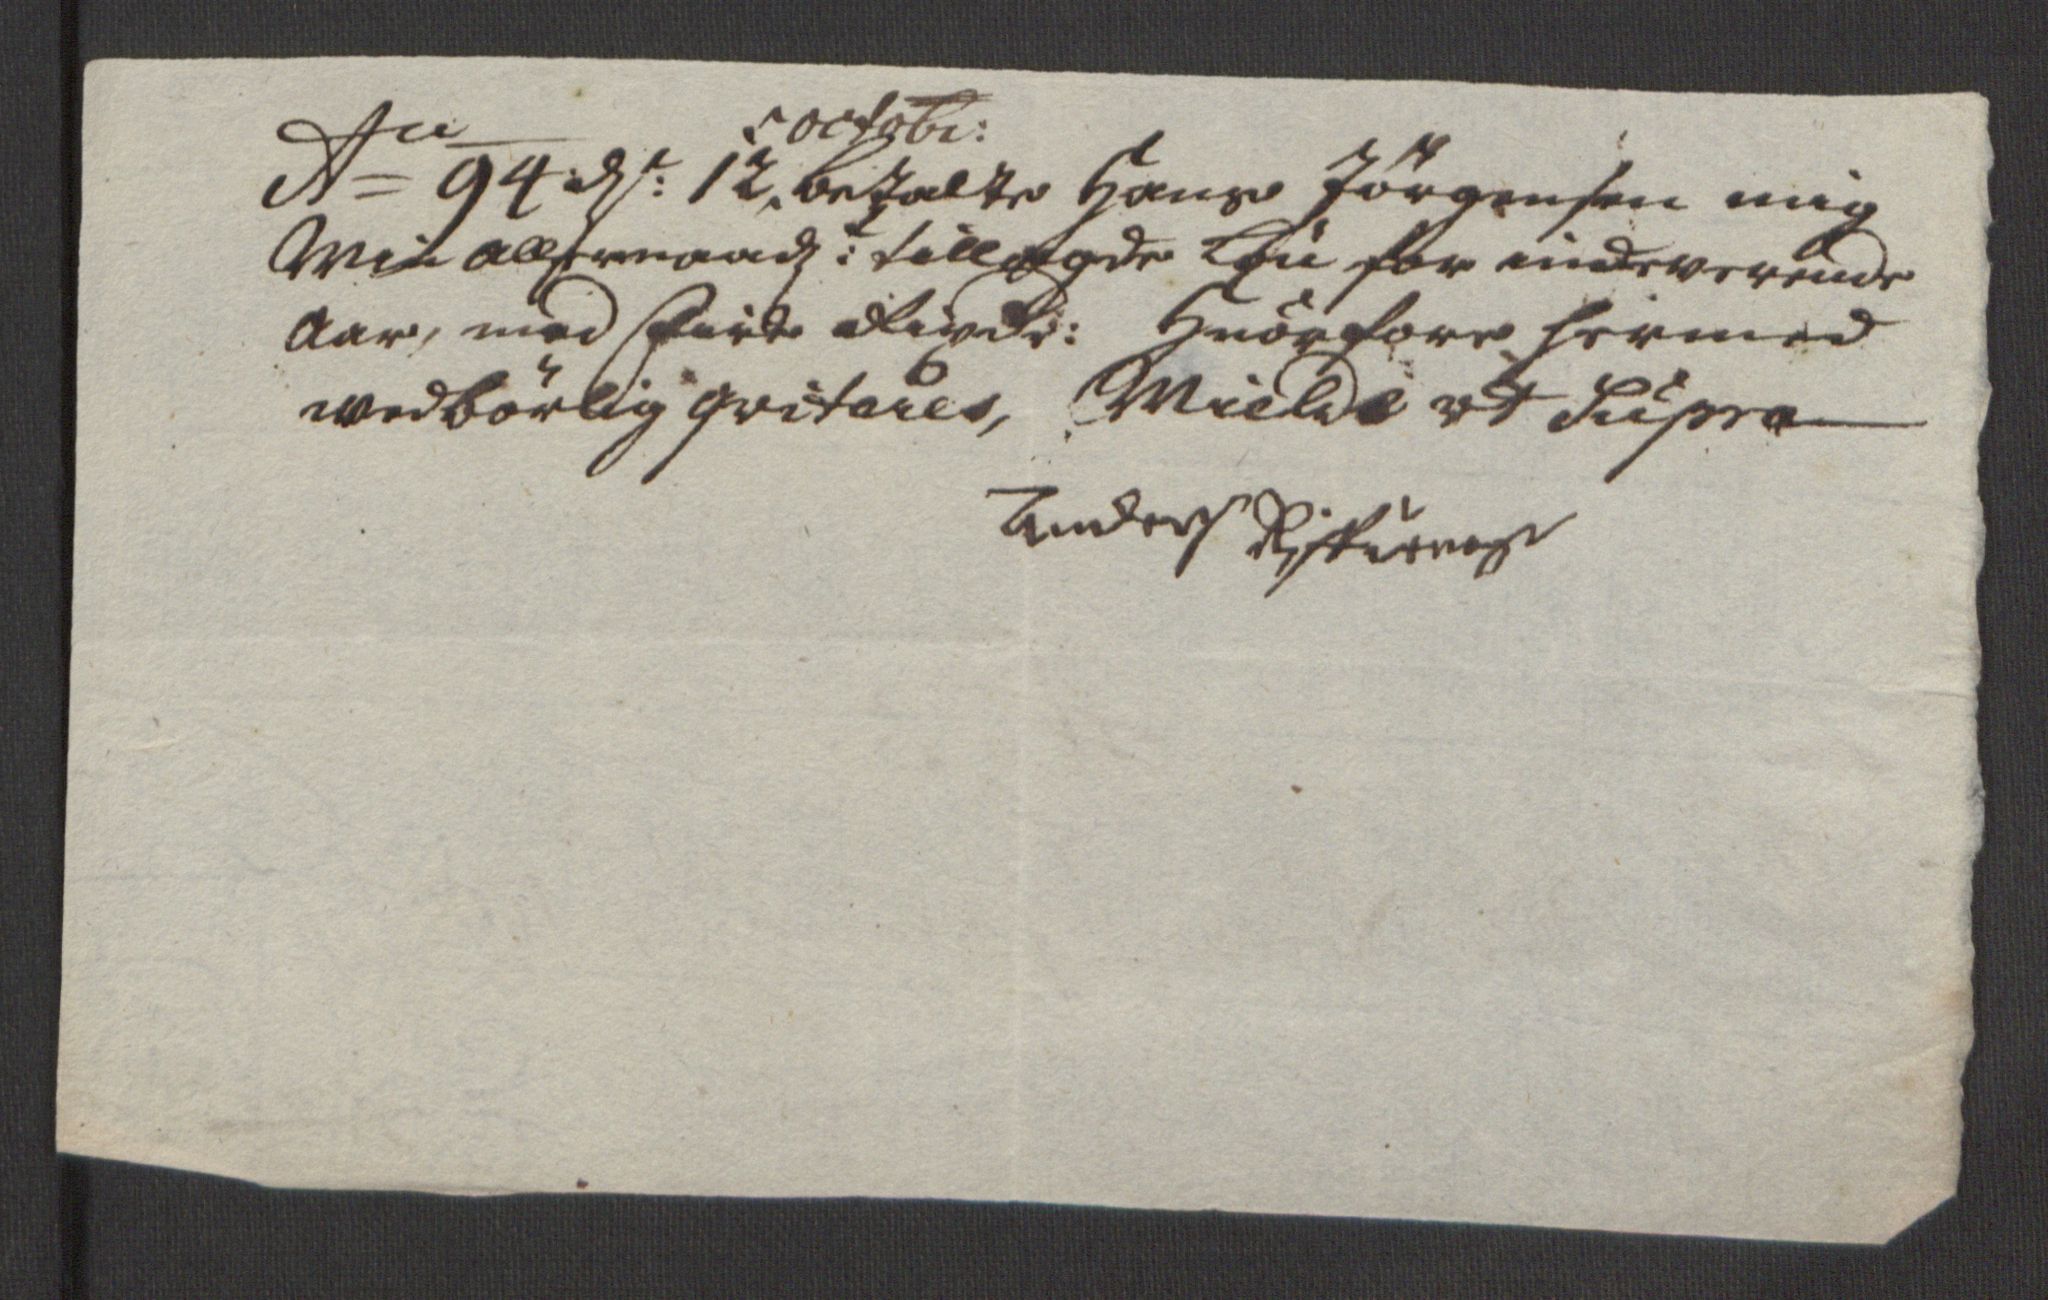 octobr:
Ao 94 dn: 12 betalte Hans Jörgensen mig
Min allernaad: tillagde Lön for inderverende
Aar, med fiire Rixdr: Hvorfore hermed
vedbörlig qviteres, Mielde ut Supra
Anders